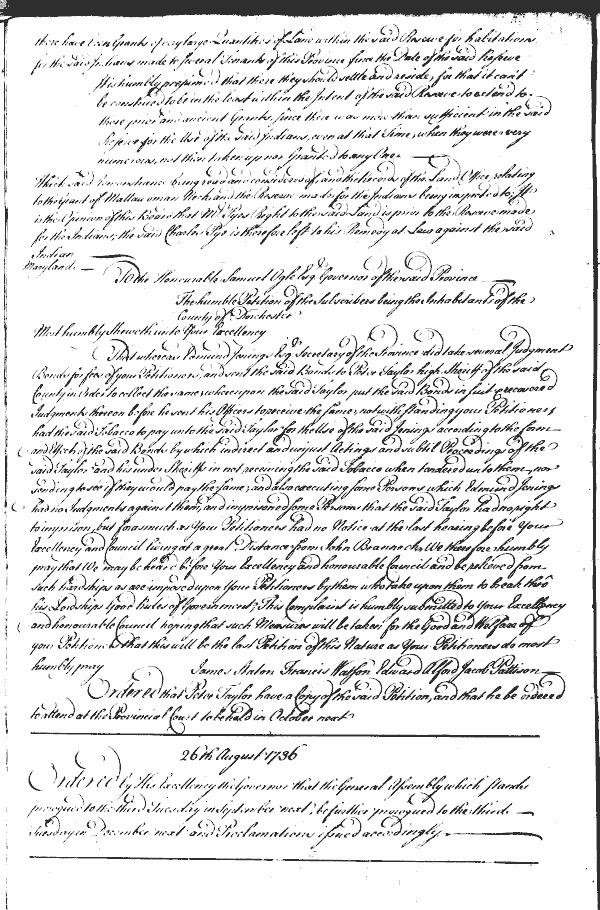 there have been Grants of very large Quantities of Land within the said Reserve for habitations
for the said Indians made to several Tenants of this Province since the Date of the said Reserve
It is humbly presumed that there they should settle and reside, for that it can't
be construed to be in the least within the Intent of the said Reserve to extend to
those prior and ancient Grants, since there was more than sufficient in the said
Reserve for the Use of the said Indians, even at that Time, when they were very
numerous, not then taken up nor Granted to any One
Which said Remonstrance being read and considered of, and the records of the Land Office, relating
to that part of Mattawoman Neck and the Reserve made for the Indians being inspected to; It
is the Opinion of this Board that Mr Pyes Right to the said Land is prior to the Reserve made
for the Indians; the said Charles Pye is therefore left to his Remedy at Law against the said
Indian
Maryland
To the Honourable Samuel Ogle Esqr. Governor of the said Province
The humble Petition of the Subscribers being the Inhabitants of the
County of Dorchester
Most humbly Sheweth unto Your Excellency
That whereas Edmund Jenings Esqr. Secretary of the Province did take several Judgment
Bonds for fees of your Petitioners, and sent the said Bonds to Peter Taylor high Sheriff of the said
County in Order to collect the same, whereupon the said Taylor put the said Bonds in suit & recovered
Judgments thereon before he sent his Officers to receive the same, notwithstanding your Petitioners
had the said Tobacco to pay unto the said Taylor for the Use of the said Jenings according to the form
and Effect of the said Bonds by which indirect and unjust Actings and subtil Proceedings of the
said Taylor and his under Sheriffs in not receiving the said Tobacco when tendered unto them, nor
sending to see if they would pay the same; and also executing some Persons which Edmund Jenings
had no Judgments against them, and imprisoned some Persons that the said Taylor had no right
to imprison, but forasmuch as Your Petitioners had no Notice at the last hearing before Your
Excellency and Council living at a great Distance from John Brannocks We therefore humbly
pray that We may be heard before Your Excellency and honourable Council and be relieved from
such hardships as are imposed upon Your Petitioners by them who take upon them to break thro
his Lordships Good Rules of Government; This Complaint is humbly submitted to Your Excellency
and honourable Council hoping that such Measures will be taken for the Good and Welfare of
your Petitioners & that this will be the last Petition of this Nature as Your Petitioners do most
humbly pray James Anton Francis Watson Edward Alford Jacob Pattison
Ordered that Peter Taylor have a Copy of the said Petition, and that he be ordered
to attend at the Provincial Court to be held in October next
26th August 1736
Ordered by His Excellency the Governor that the General Assembly which stands
prorogued to the third Tuesday in September next, be further prorogued to the third
Tuesday in December next and Proclamations issued accordingly.